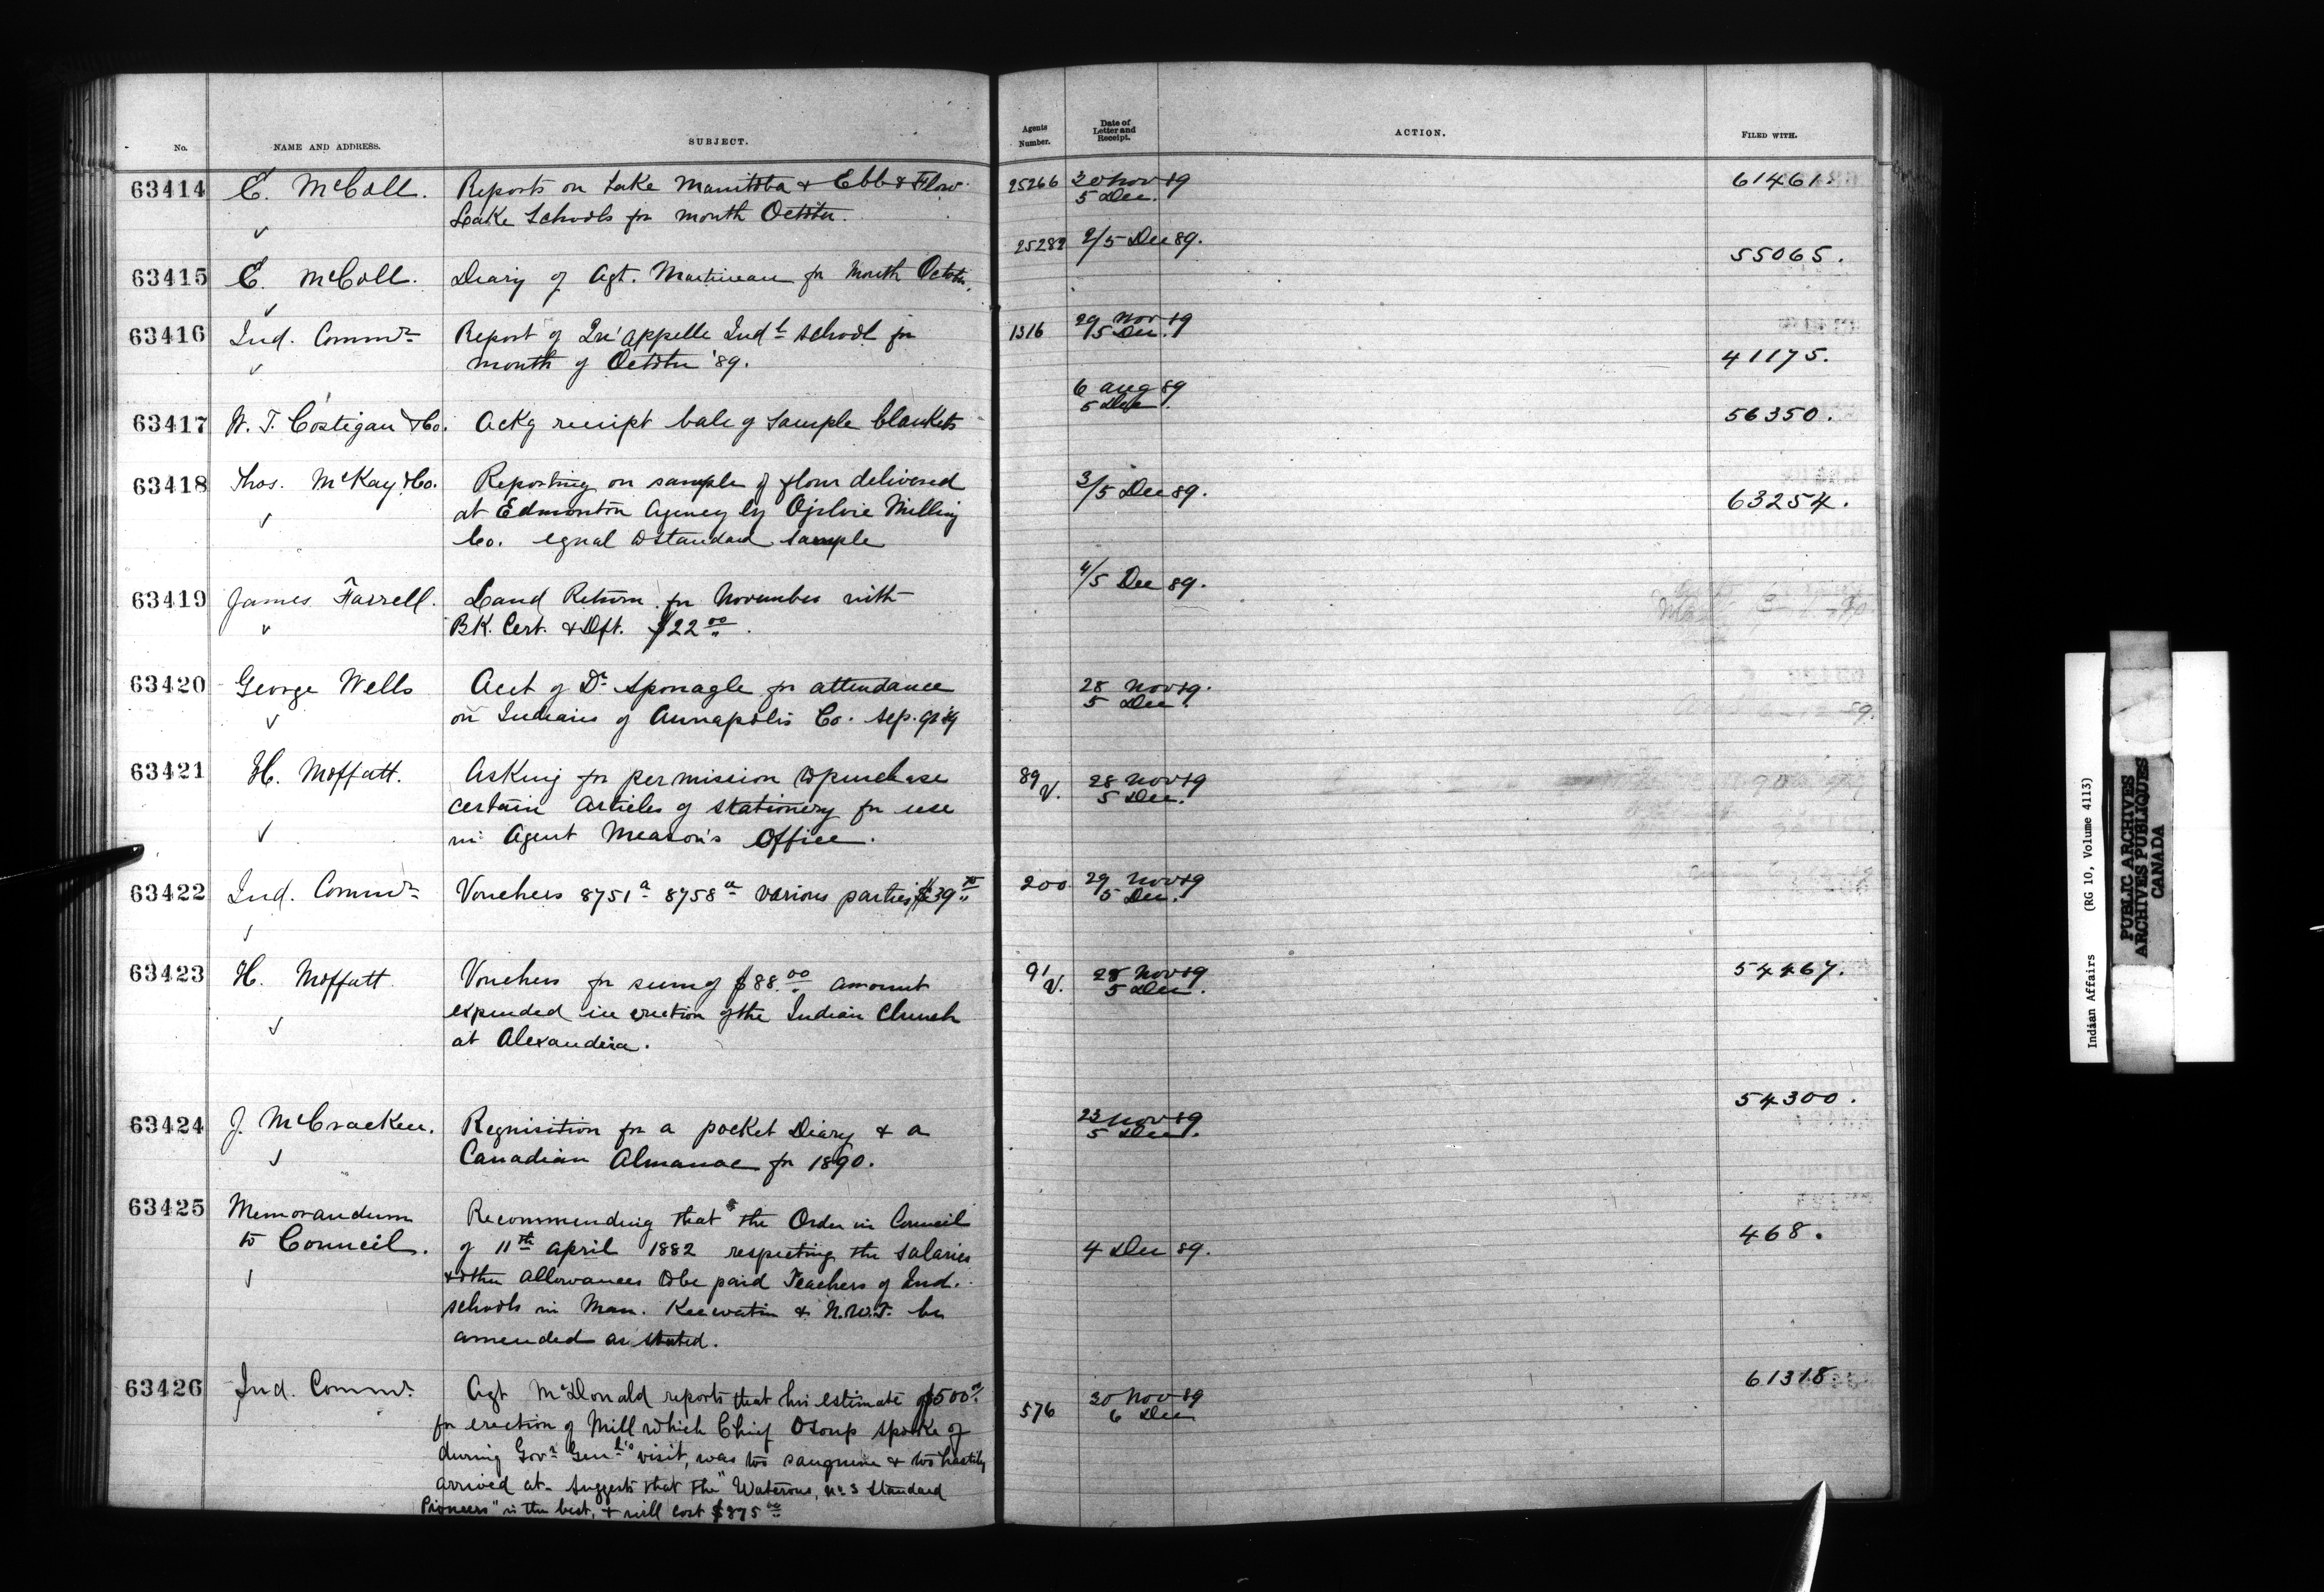 No. NAME AND ADDRESS. SUBJECT. Agents Number. Date of Letter and Receipt. ACTION. FILED WITH.
63414 E. McColl. Reports on Lake Manitoba & Ebb & Flow 25266 30 Nov 89 61461.
Lake Schools for month October. 5 Dec.
63415 E. McColl. Diary of Agt. Martineau for month October. 25282 2/5 Dec 89. 55065.
63416 Ind. Commr Report of Qu'appelle Indl school for 1316 29 Nov 89
month of October '89. 5 Dec. 41175.
63417 W. T. Costigan & Co. Ackg receipt bale of sample blankets 6 Aug 89
5 Dec. 56350.
63418 Thos. McKay & Co. Reporting on sample of flour delivered 3/5 Dec 89. 63254.
at Edmonton Agency by Ogilvie Milling
Co. equal to standard sample
63419 James Farrell. Land Return for November with 4/5 Dec 89.
BK. Cert. & Dft. $22 00.
63420 George Wells Acct of Dr Sponagle for attendance 28 Nov 89.
on Indians of Annapolis Co. Sep. qr 89 5 Dec.
63421 H. Moffatt. Asking for permission to purchase 89/V. 28 Nov 89
certain articles of stationery for use 5 Dec.
in Agent Meason's Office.
63422 Ind. Commr Vouchers 8751a 8758a various parties 200 29 Nov 89
5 Dec.
63423 H. Moffatt Vouchers for sum of $88.00 amount 91/V. 28 Nov 89 54467.
expended in erection of the Indian Church 5 Dec.
at Alexandria.
63424 J. McCracken. Requisition for a pocket Diary & a 23 Nov 89 54300.
Canadian Almanac for 1890. 5 Dec.
63425 Memorandum Recommending that the Order in Council
to Council. of 11th April 1882 respecting the salaries 4 Dec 89. 468.
& other allowances to be paid Teachers of Ind.
schools in Man. Keewatin & N.W.T. be
amended as stated.
63426 Ind. Commr. Agt McDonald reports that his estimate of $500 576 30 Nov 89 61318
for erection of Mill which Chief Osoup spoke of 6 Dec
during Govr Genl's visit, was too sanguine & too hastily
arrived at. Suggests that the "Waterous, No 3 Standard
Pioneers" is the best, & will cost $875 00
Indian Affairs (RG 10, Volume 4113)
PUBLIC ARCHIVES
ARCHIVES PUBLIQUES
CANADA